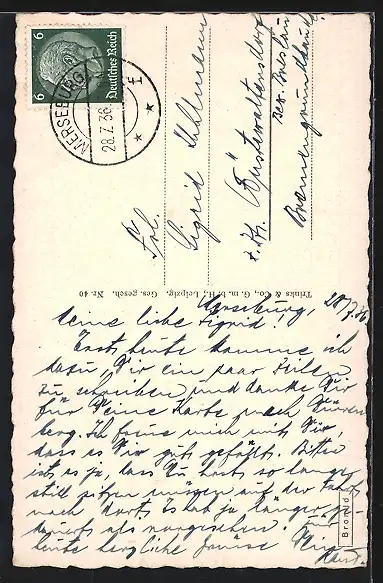 6 6
Deutsches Reich
MERSEBURG
28.7.36.
f
Frl.
Sigrid
Wüstewaltersdorf
Bez. Breslau
Trinks & Co., G. m. b. H., Leipzig. Ges. gesch. Nr. 40
Merseburg, 28.7.36
Meine liebe Sigrid!
Erst heute komme ich
dazu, Dir ein paar Zeilen
zu schreiben und danke Dir
für Deine Karte nach
berg. Ich freue mich mit Dir,
dass es Dir gut gefällt. Bitter
ist es ja, dass Du hast so lange
still sitzen müssen auf der Fahrt
nach dort. Es hat ja länger ge-
dauert als vorgesehen! Für
heute herzliche Grüsse Dein
Bromid